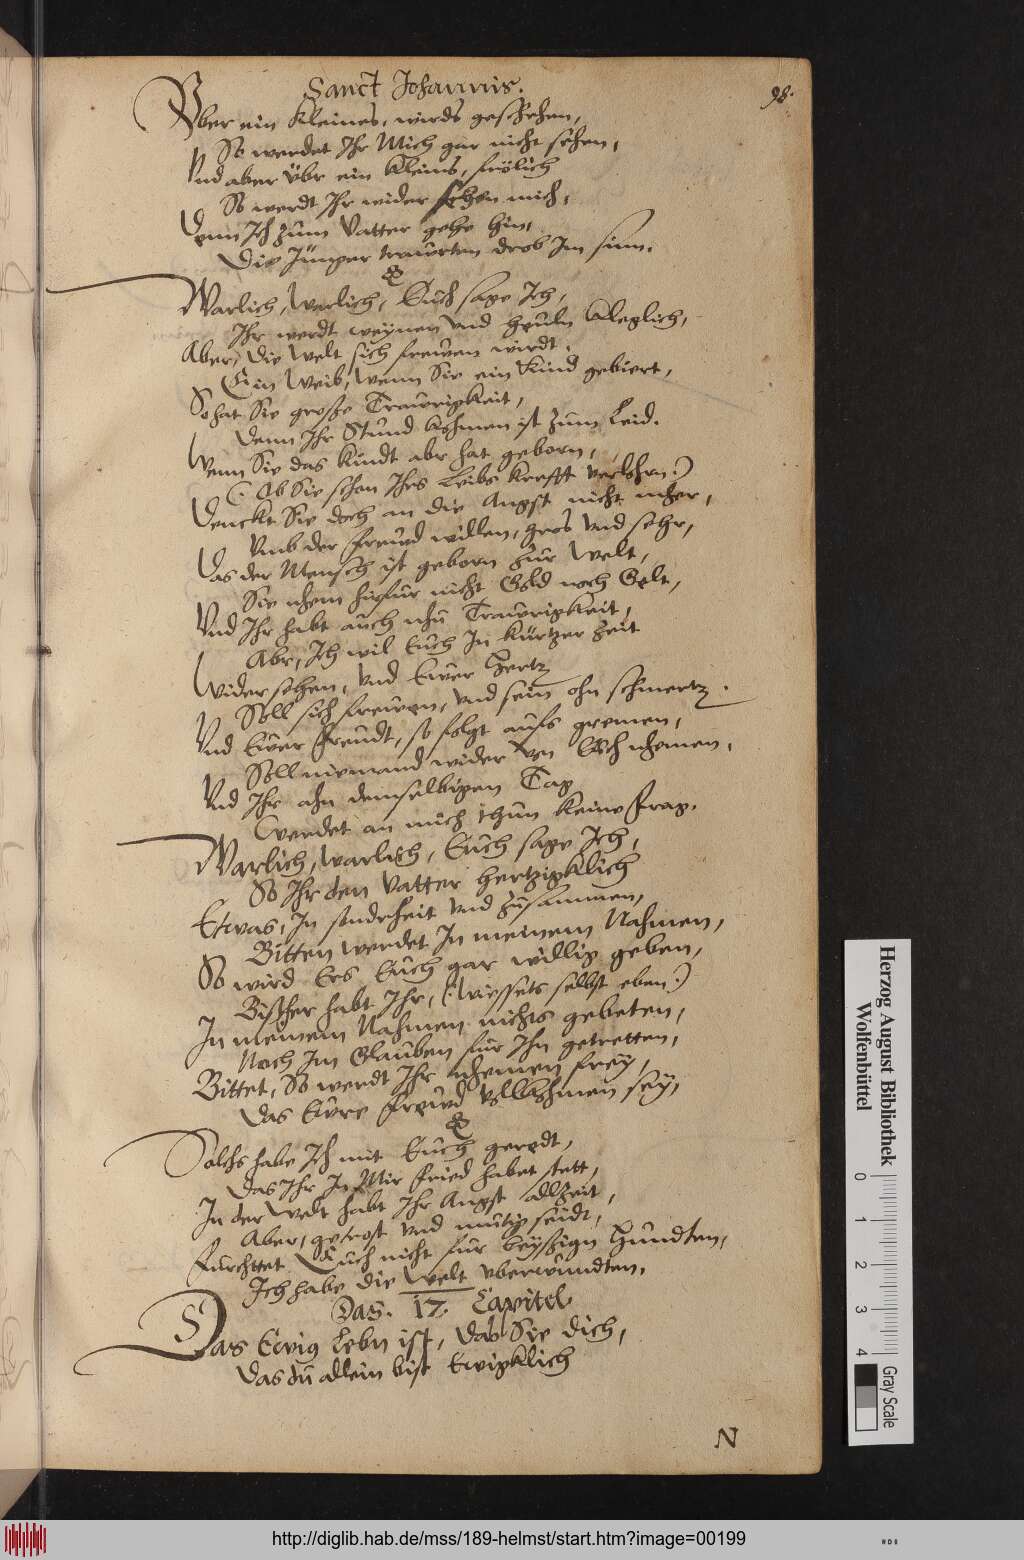 Sanct Johannis.
98.
Vber ein Kleines, wirds geschehen,
So werdet Ihr Mich gar nicht sehen,
Vnd aber übr ein Kleins, frölich
So werdt Ihr wider sehen mich,
Denn Ich zum Vatter gehe hin,
Die Jünger traurten drob Im sinn.
Warlich, Warlich, Euch sage Ich,
Ihr werdt weynen vnd heuln kleglich,
Aber, die Welt sich frewen wirdt.
Ein Weib, Wenn Sie ein Kind gebiert,
So hat Sie große Traurigkeit,
Denn Ihr Stund kohmen ist zum Leid.
Wenn Sie das Kindt abr hat geborn,
(: Ob Sie schon Ihrs Leibs krefft verlohrn :)
Denckt Sie doch an die Angst nicht mher,
Vmb der freud willen, gros vnd sehr,
Das der Mensch ist geborn zur Welt,
Sie nhem hirfur nicht Gold noch Gelt,
Vnd Ihr habt auch nhu Traurigkeit,
Abr, Ich wil Euch In kürtzer Zeit
Wider sehen, vnd Ewer Hertz
Soll sich frewen, vnd sein ohn schmertz.
Vnd Ewer freudt, so folgt aufs gremen,
Soll niemand wider von Euch nhemen.
Vnd Ihr ahn demselbigen Tag
Werdet an mich thun keine frag.
Warlich, Warlich, Euch sage Ich,
So Ihr den Vatter hertzigklich
Etwas, In sonderheit vnd zusammen,
Bitten werdet In meinem Nahmen,
So wird Ers Euch gar willig geben,
Bißher habt Ihr, (: wiessets selbst eben :)
In meinem Nahmen nichts gebeten,
Noch Im Glauben fur Ihn getretten,
Bittet, So werdt Ihr nhemen frey,
Das Ewre freud vollkohmen sey,
Solchs habe Ich mit Euch geredt,
Das Ihr In Mir fried habet stett,
In der Welt habt Ihr Angst allzeit,
Aber, getrost vnd mutig seidt,
Furchttet Euch nicht fur beyßign Hundten,
Ich habe die Welt vberwundten.
Das. 17. Capitel.
Das Ewig Lebn ist, das Sie dich,
Das du allein bist Ewigklich
N
Herzog August Bibliothek
Wolfenbüttel
0 1 2 3 4
Gray Scale
http://diglib.hab.de/mss/189-helmst/start.htm?image=00199